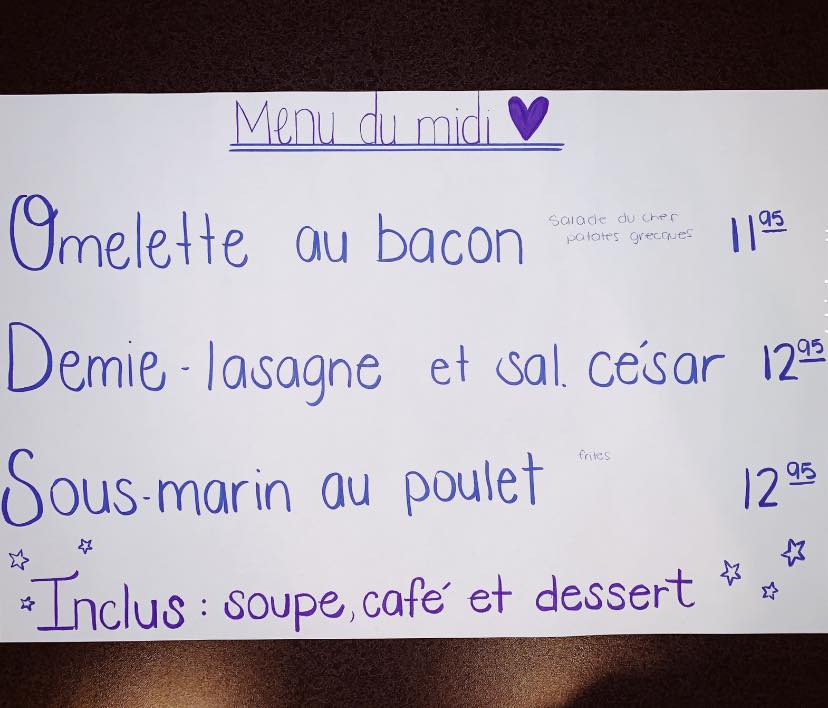 Menu du midi
Omelette au bacon salade du chef 11 95
patates grecques
Demie-lasagne et sal. césar 12 95
Sous-marin au poulet frites 12 95
Inclus: soupe, café et dessert